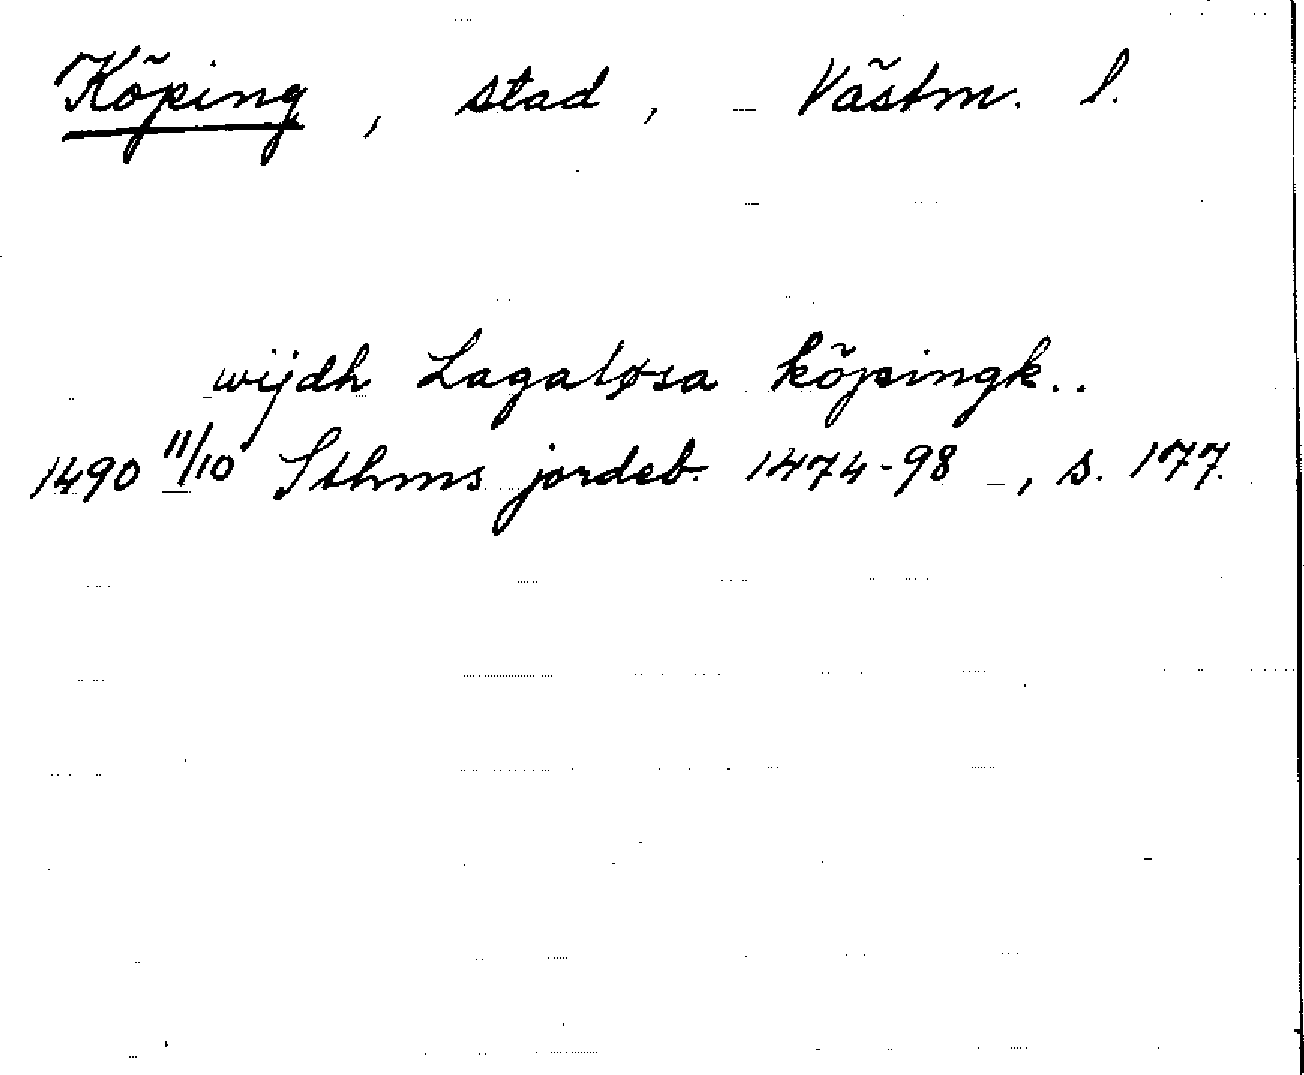 Köping, stad, Västm. l.
wijdh Lagaløsa köpingk..
1490 11/10 Sthms jordeb. 1474-98, s. 177.